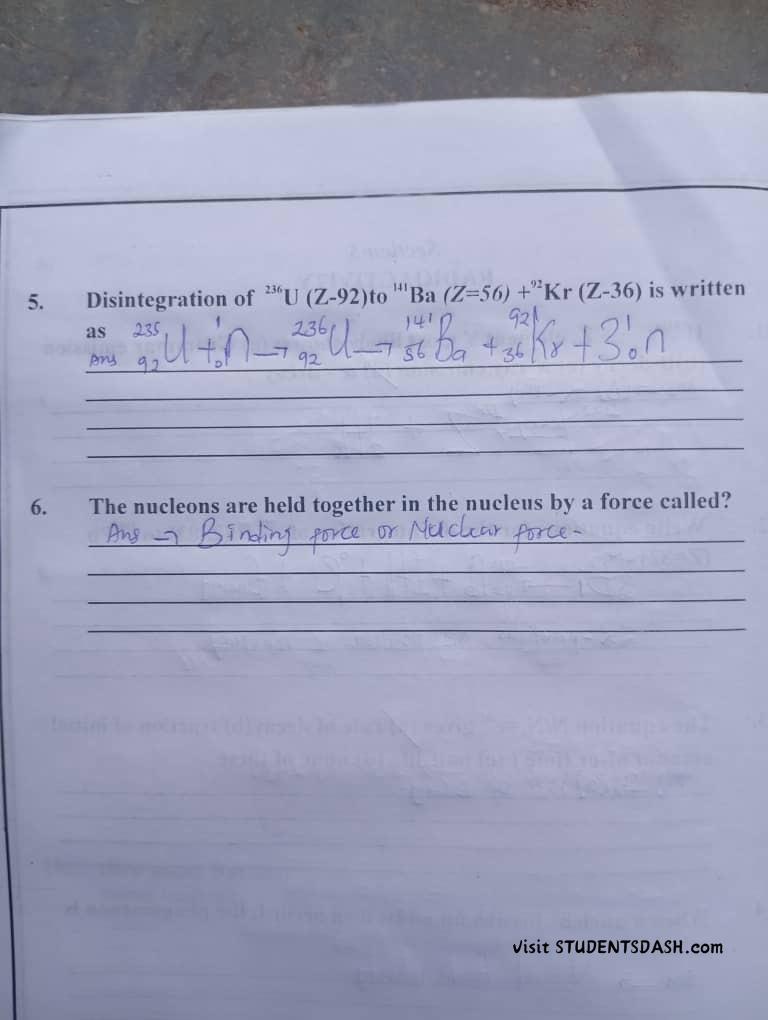 5. Disintegration of ²³⁶U (Z-92)to ¹⁴¹Ba (Z=56) +⁹²Kr (Z-36) is written
as ²³⁵₉₂U + ¹₀n → ²³⁶₉₂U → ¹⁴¹₅₆Ba + ⁹²₃₆Kr + 3¹₀n
Ans
6. The nucleons are held together in the nucleus by a force called?
Ans → Binding force or Nuclear force-
Visit STUDENTSDASH.com